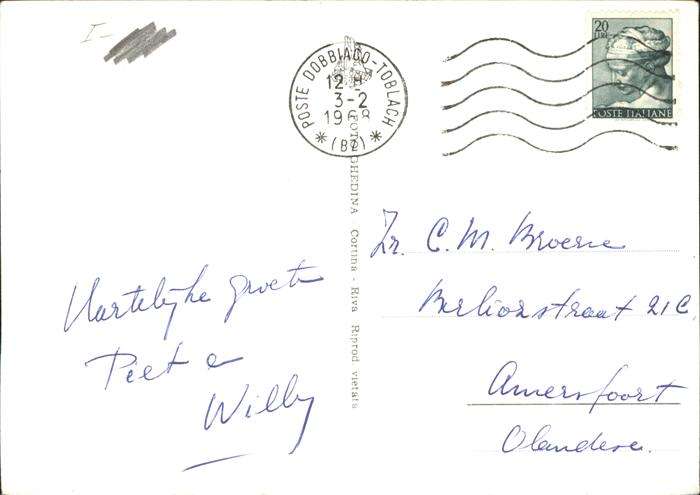 I-
POSTE DOBBIACO-TOBLACH
12 H
3-2
1968
* (BZ) *
20
LIRE
POSTE ITALIANE
FOTO GHEDINA - Cortina - Riva Riprod vietata
Hartelijke groeten
Piet en
Willy
Zr. C. M. Broere
Berliozstraat 21 C,
Amersfoort
Olandese.